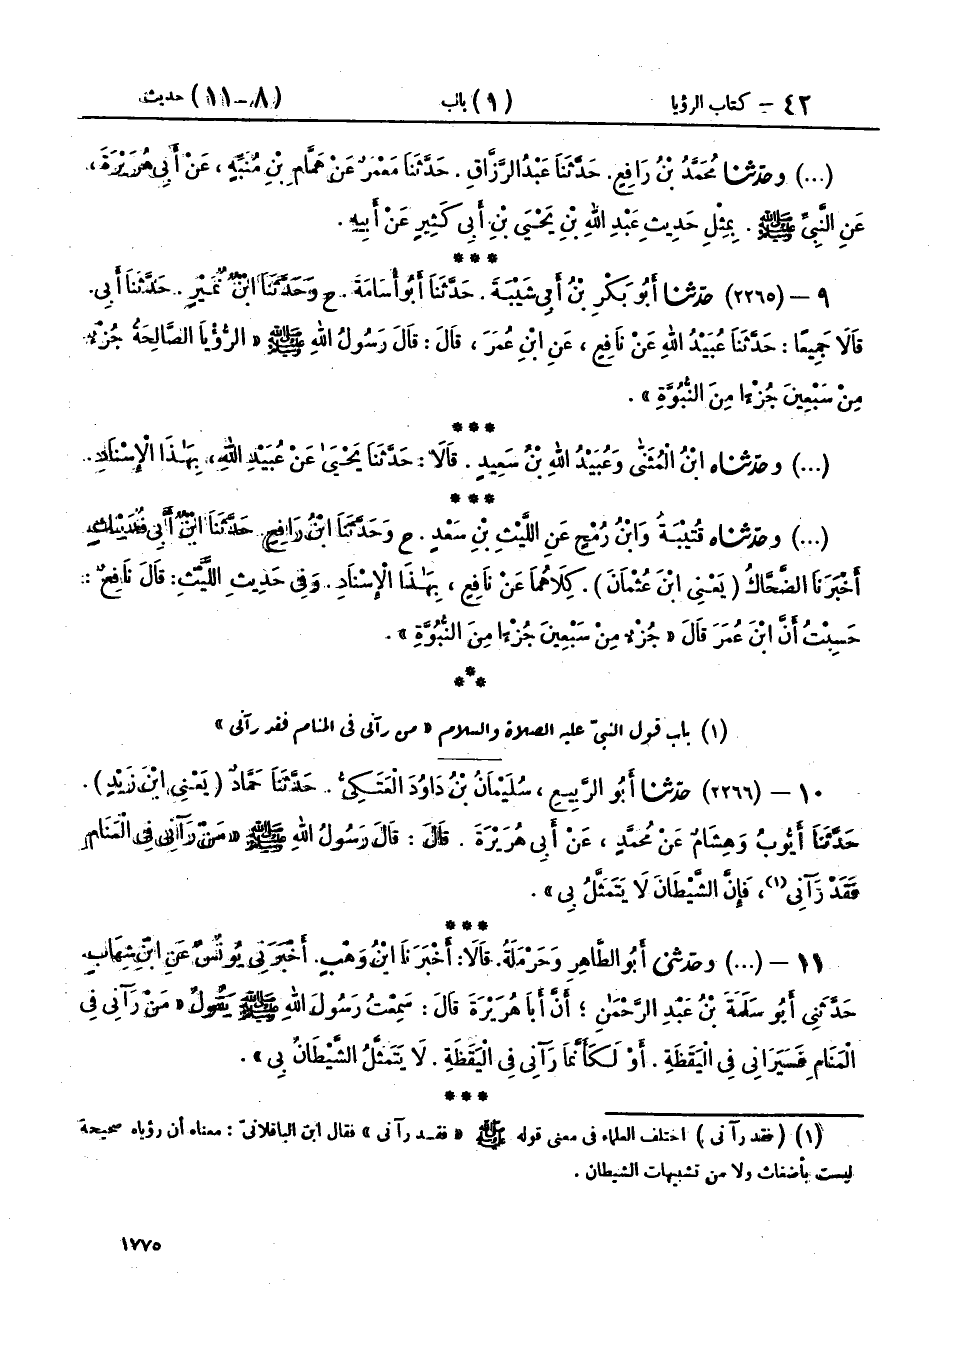 ٤٢ - كتاب الرؤيا (٩) باب (٨-١١) حديث
(...) وحَدَّثَنَا مُحَمَّدُ بْنُ رَافِعٍ. حَدَّثَنَا عَبْدُ الرَّزَّاقِ. حَدَّثَنَا مَعْمَرٌ عَنْ هَمَّامِ بْنِ مُنَبِّهٍ، عَنْ أَبِي هُرَيْرَةَ،
عَنِ النَّبِيِّ ﷺ. بِمِثْلِ حَدِيثِ عَبْدِ اللهِ بْنِ يَحْيَىٰ بْنِ أَبِي كَثِيرٍ عَنْ أَبِيهِ.
***
٩ - (٢٢٦٥) حَدَّثَنَا أَبُو بَكْرِ بْنُ أَبِي شَيْبَةَ. حَدَّثَنَا أَبُو أُسَامَةَ. ح وَحَدَّثَنَا ابْنُ نُمَيْرٍ. حَدَّثَنَا أَبِي.
قَالَا جَمِيعًا: حَدَّثَنَا عُبَيْدُ اللهِ عَنْ نَافِعٍ، عَنِ ابْنِ عُمَرَ، قَالَ: قَالَ رَسُولُ اللهِ ﷺ « الرُّؤْيَا الصَّالِحَةُ جُزْءٌ
مِنْ سَبْعِينَ جُزْءًا مِنَ النُّبُوَّةِ ».
***
(...) وحَدَّثَنَاه ابْنُ الْمُثَنَّىٰ وَعُبَيْدُ اللهِ بْنُ سَعِيدٍ. قَالَا: حَدَّثَنَا يَحْيَىٰ عَنْ عُبَيْدِ اللهِ، بِهَـٰذَا الْإِسْنَادِ.
***
(...) وحَدَّثَنَاه قُتَيْبَةُ وَابْنُ رُمْحٍ عَنِ اللَّيْثِ بْنِ سَعْدٍ. ح وَحَدَّثَنَا ابْنُ رَافِعٍ. حَدَّثَنَا ابْنُ أَبِي فُدَيْكٍ
أَخْبَرَنَا الضَّحَّاكُ (يَعْنِي ابْنَ عُثْمَانَ). كِلَاهُمَا عَنْ نَافِعٍ، بِهَـٰذَا الْإِسْنَادِ. وَفِي حَدِيثِ اللَّيْثِ: قَالَ نَافِعٌ:
حَسِبْتُ أَنَّ ابْنَ عُمَرَ قَالَ « جُزْءٌ مِنْ سَبْعِينَ جُزْءًا مِنَ النُّبُوَّةِ ».
***
(١) باب قول النبيّ عليه الصلاة والسلام « من رآنى فى المنام فقد رآنى »
١٠ - (٢٢٦٦) حَدَّثَنَا أَبُو الرَّبِيعِ، سُلَيْمَانُ بْنُ دَاوُدَ الْعَتَكِيُّ. حَدَّثَنَا حَمَّادٌ (يَعْنِي ابْنَ زَيْدٍ).
حَدَّثَنَا أَيُّوبُ وَهِشَامٌ عَنْ مُحَمَّدٍ، عَنْ أَبِي هُرَيْرَةَ. قَالَ: قَالَ رَسُولُ اللهِ ﷺ « مَنْ رَآنِي فِي الْمَنَامِ
فَقَدْ رَآنِي(١)، فَإِنَّ الشَّيْطَانَ لَا يَتَمَثَّلُ بِي ».
***
١١ - (...) وحَدَّثَنِي أَبُو الطَّاهِرِ وَحَرْمَلَةُ. قَالَا: أَخْبَرَنَا ابْنُ وَهْبٍ. أَخْبَرَنِي يُونُسُ عَنِ ابْنِ شِهَابٍ.
حَدَّثَنِي أَبُو سَلَمَةَ بْنُ عَبْدِ الرَّحْمَـٰنِ؛ أَنَّ أَبَا هُرَيْرَةَ قَالَ: سَمِعْتُ رَسُولَ اللهِ ﷺ يَقُولُ « مَنْ رَآنِي فِي
الْمَنَامِ فَسَيَرَانِي فِي الْيَقَظَةِ. أَوْ لَكَأَنَّمَا رَآنِي فِي الْيَقَظَةِ. لَا يَتَمَثَّلُ الشَّيْطَانُ بِي ».
***
(١) (فقد رآنى) اختلف العلماء فى معنى قوله ﷺ « فقد رآنى » فقال ابن الباقلانىّ: معناه أن رؤياه صحيحة
ليست بأضغاث ولا من تشبيهات الشيطان.
١٧٧٥